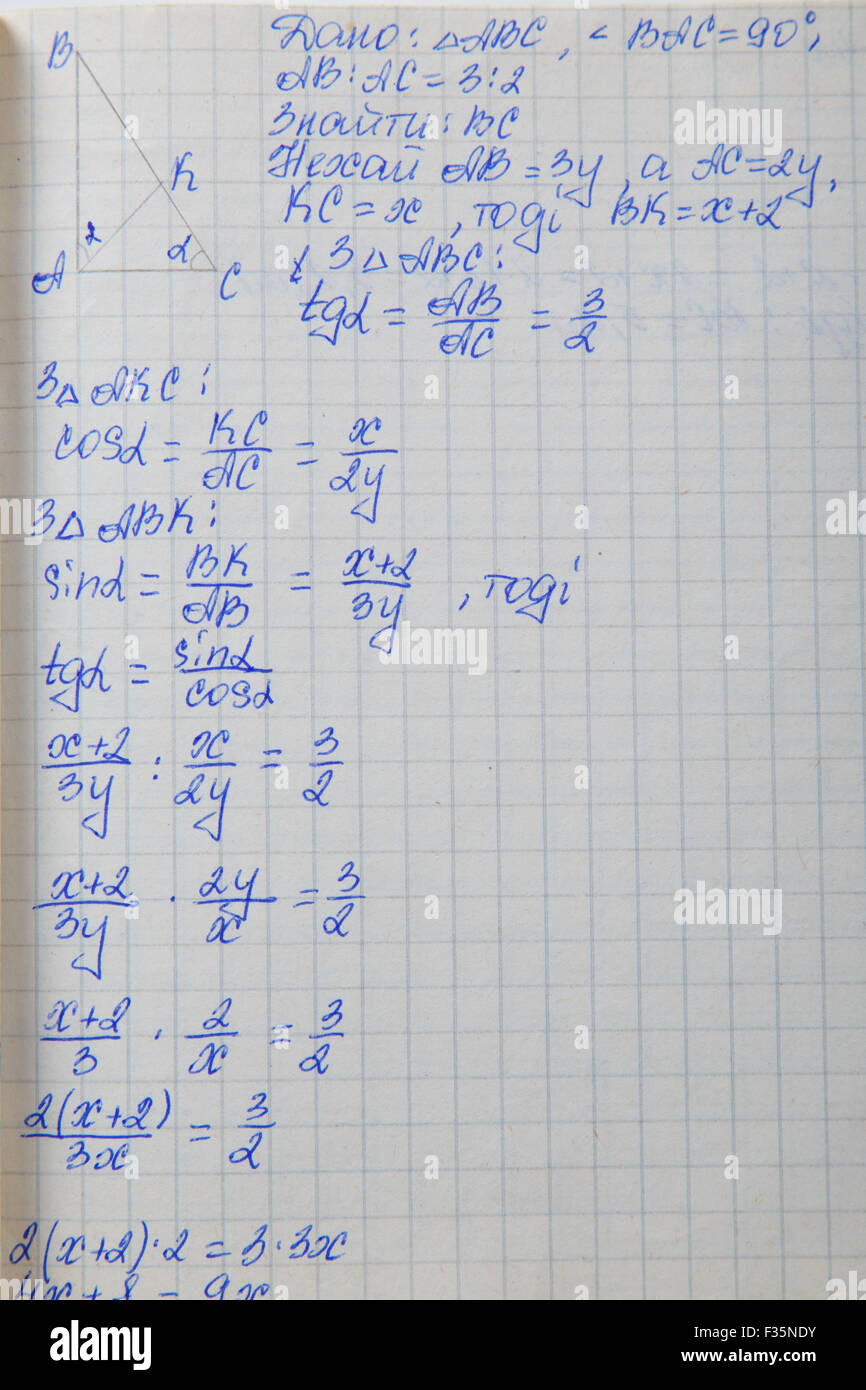 Дано: △ABC, < BAC = 90°,
AB : AC = 3 : 2
Знайти: BC
Нехай AB = 3y, а AC = 2y,
KC = x, тоді BK = x+2
З △ ABC:
tgα = AB/AC = 3/2
B
K
A
α
α
C
З △ AKC:
cosα = KC/AC = x/2y
З △ ABK:
sinα = BK/AB = x+2/3y, тоді
tgα = sinα/cosα
x+2/3y : x/2y = 3/2
x+2/3y · 2y/x = 3/2
x+2/3 · 2/x = 3/2
2(x+2)/3x = 3/2
2(x+2)·2 = 3·3x
4x+8 = 9x
alamy
alamy
alamy
alamy
a
a
a
a
a
a
a
a
a
alamy
Image ID: F35NDY
www.alamy.com